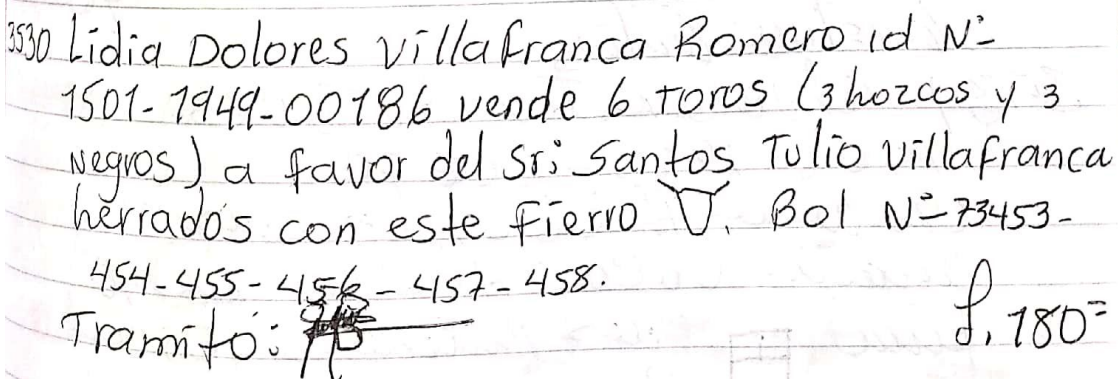 3530 Lidia Dolores Villafranca Romero id Nº
1501-1949-00186 vende 6 toros (3 hozcos y 3
negros) a favor del Sr; Santos Tulio Villafranca
herrados con este Fierro . Bol Nº 73453-
454-455-456-457-458.
Tramitó:
L. 180=